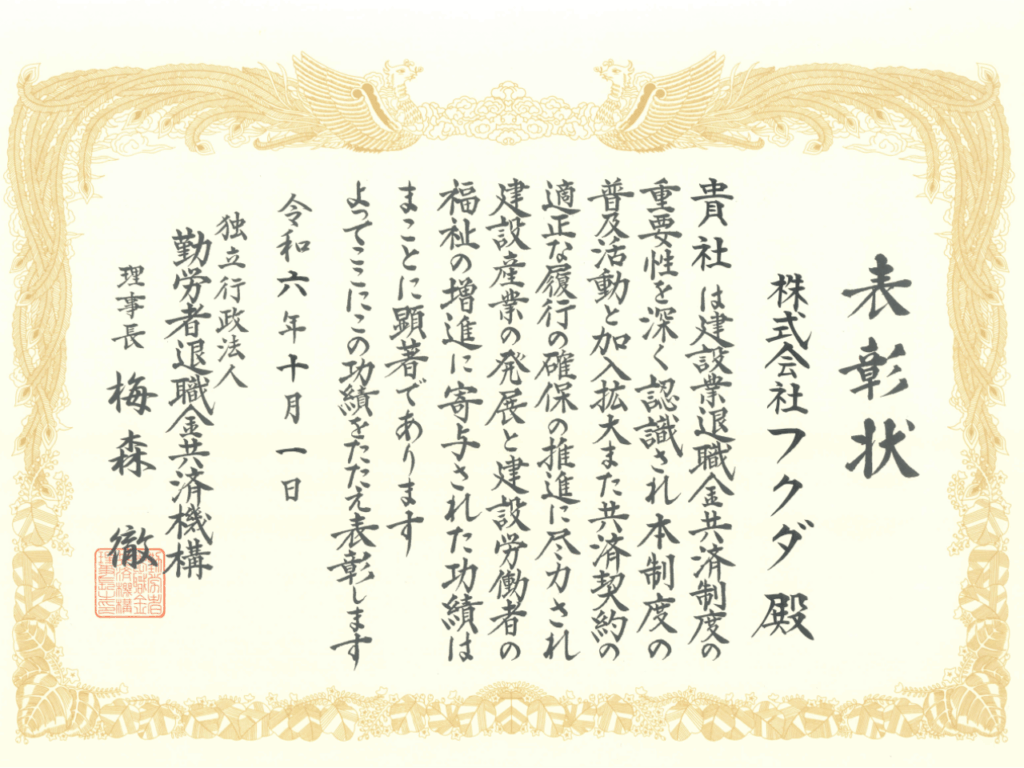 表彰状
株式会社フクダ 殿
貴社は建設業退職金共済制度の
重要性を深く認識され本制度の
普及活動と加入拡大また共済契約の
適正な履行の確保の推進に尽力され
建設産業の発展と建設労働者の
福祉の増進に寄与された功績は
まことに顕著であります
よってここにこの功績をたたえ表彰します
令和六年十月一日
独立行政法人
勤労者退職金共済機構
理事長 梅森 徹